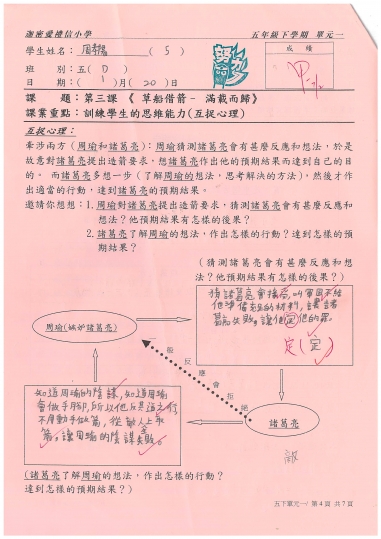 迦密愛禮信小學
五年級下學期 單元一
學生姓名：周翠陽（5）
成績
班 別：五（D）
甲
日 期：（ 1 ）月（ 20 ）日
課 題：第三課《 草船借箭 － 滿載而歸》
課業重點：訓練學生的思維能力(互捉心理)
互捉心理：
牽涉兩方（周瑜和諸葛亮)：周瑜猜測諸葛亮會有甚麼反應和想法，於是
故意對諸葛亮提出造箭要求，想諸葛亮作出他的預期結果而達到自己的目
的。 而諸葛亮多想一步（了解周瑜的想法，思考解決的方法)，然後才作
出適當的行動，達到諸葛亮的預期結果。
邀請你想想：1.周瑜對諸葛亮提出造箭要求，猜測諸葛亮會有甚麼反應和
想法？他預期結果有怎樣的後果？
2.諸葛亮了解周瑜的想法，作出怎樣的行動？達到怎樣的預
期結果？
(猜測諸葛亮會有甚麼反應和想
法？他預期結果有怎樣的後果？)
猜諸葛亮會接受，叫軍匠不給
他準備充足的材料，讓諸
葛亮失敗，讓他定他的罪。
定(定)
周瑜(嫉妒諸葛亮)
一般反應會拒絕
知道周瑜的陰謀，知道周瑜
會做手腳，所以他
不用動手做箭，從敵人上取
箭，讓周瑜的陰謀失敗。
諸葛亮
(諸葛亮了解周瑜的想法，作出怎樣的行動？
達到怎樣的預期結果？)
五下單元一/ 第 4 頁 共 7 頁